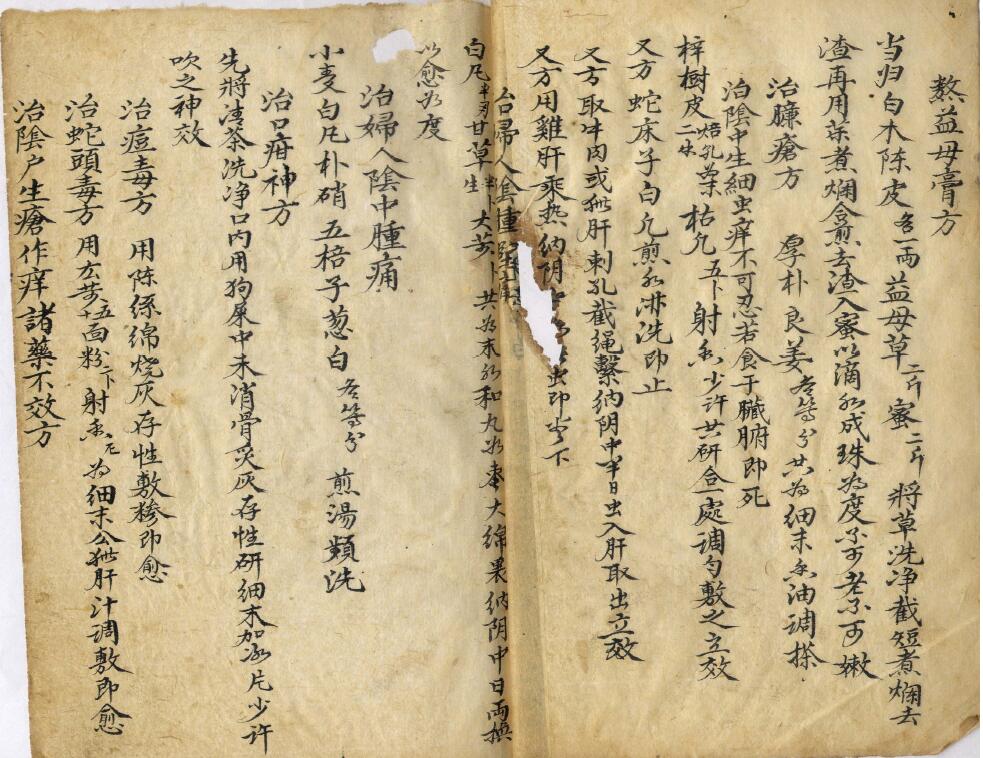 熬益母膏方
当归白术陈皮各一両益母草二斤蜜二斤將草洗净截短煮烂去
渣再用茶煮烂念煎去渣入蜜以滴水成珠為度不可老不可嫩
治臁瘡方 厚朴良姜各等分共为细末香油调搽
治陰中生細虫痒不可忍若食于臟腑即死
梓樹皮焙乾二分枯凢五卜射香少许共研合一處调勻敷之立效
又方 蛇床子白凢煎水淋洗即止
又方取牛肉或猪肝刺孔截绳繫纳阴中半日虫入肝取出立效
又方用雞肝乘热纳阴虫即出下
治婦人陰
白凢半両甘草生大黄共为末水和丸如枣大绵裹纳阴中日両換
以愈为度
治婦人陰中腫痛
小麦白凢朴硝五棓子葱白各等分 煎湯頻洗
治口疳神方
先將清茶洗净口内用狗屎中未消骨炙灰存性研细末加冰片少许
吹之神效
治痘毒方 用陈絲绵烧灰存性敷掺即愈
治蛇頭毒方 用雄黄五卜面粉二卜射香為细末公猪肝汁调敷即愈
治陰户生瘡作痒諸藥不效方